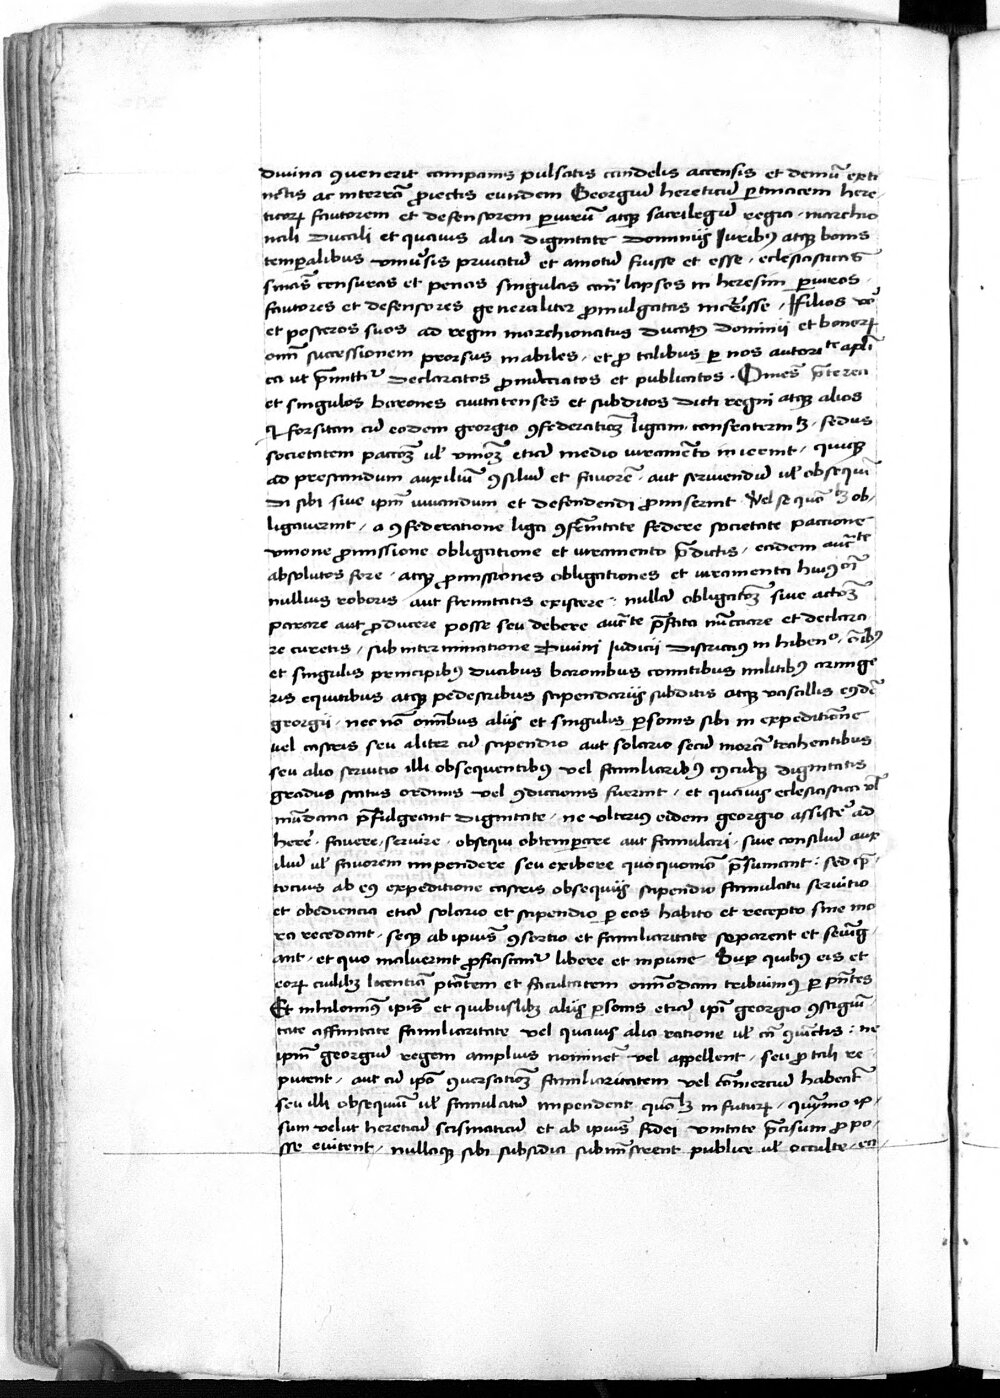 divina ꝯvenerit campanis pulsatis candelis accensis et demū exti
nctis ac in terrā ꝓiectis eundem Georgiū hereticū ꝑtinacem here-
ticoꝝ fautorem et defensorem ꝑiurū atqꝫ sacrilegū regia marchio
nali Ducali et quavis alia dignitate Dominiis Iuribꝰ atqꝫ bonis
temꝑalibus univ̄sis privatū et amotū fuisse et esse · eclesiasticas
sn̄ias censuras et penas singulas cont̄ lapsos in heresim ꝑiuros
fautores et defensores generaliter ꝓmulgatas incurrisse · Filios vō
et posteros suos ad regni marchionatus ducatꝰ dominii et bonoꝝ
om̄ successionem prorsus inabiles · et ꝓ talibus ꝑ nos autoritᵗᵉ apl̄i
ca ut p̄mittitᷣ declaratos ꝓnunciatos et publicatos · Om̄es p̄terea
et singulos barones civitatenses et subditos dicti regni atqꝫ alios
q̄ forsitan cū eodem georgio ꝯfederatioꝫ ligam conf. . . fedus
societatem pactoꝫ ul̄ unioꝫ etiā medio iuramēto inierint · quiqꝫ
ad prestandum auxiliū ꝯsiliū et favorē · aut serviendū ul̄ obsequē
di sibi sive ip̄m iuvandum et defendendi ꝓmiserint · vel se quōlꝫ ob-
ligaverint · a ꝯfederatione liga ꝯfr̄nitate federe societate pactione
unione ꝓmissione obligatione et iuramento p̄dictis · eadem auctᵗᵉ
absolutos fore · atqꝫ ꝓmissiones obligationes et iuramenta huiꝰmōi
nullius roboris aut firmitatis existere · nullā obligatōꝫ sive actōꝫ
parare aut ꝓducere posse seu debere auctᵗᵉ p̄fata nūciare et declara
re curetis · sub interminatione Divini Iudicii districtiꝰ inhibendᵒ · om̄ibꝰ
et singulis principibꝰ ducibus baronibus comitibus militibꝰ armige
ris equitibus atqꝫ pedestribus stipendariis subditis atqꝫ vasallis eiꝰdē
georgii · nec nō om̄ibus aliis et singulis ꝑsonis sibi in expeditione
vel castris seu aliter cū stipendio aut solario secū morā trahentibus
seu alio servitio illi obsequentibꝰ vel familiaribꝰ cuiuscūqꝫ dignitatis
gradus status ordinis vel ꝯdicionis fuerint · et quavis eclesiastica ul̄
mūdana p̄fulgeant dignitate · ne ulterius eidem georgio assistē ad
herē · favere servire · obsequi obtemꝑare aut famulari · sive consiliū aux
iliū ul̄ favorem impendere seu exibere quoquomō p̄sumant : sed ...
tocius ab eiꝰ expeditione castris obsequiis stipendio famulatu servitio
et obediencia etiā solario et stipendio ꝑ eos habito et recepto sine mo
ra recedant · seqꝫ ab ipsius ꝯsortio et familiaritate separent et seiung-
ant · et quo maluerint ꝓficiscantᷣ libere et inpune Suꝑ quibꝰ eis et
eoꝝ cuilibꝫ licentiā pt̄atem et facultatem om̄imodam tribuimꝰ ꝑ pn̄tes
Et nihilominꝰ ip̄is et quibuslibꝫ aliis ꝑsonis etiā ip̄i georgio ꝯsāguini
tate affinitate familiaritate vel quavis alia ratione ul̄ cā ꝯiūctis : ne
ip̄m georgiū regem amplius nominēt vel appellent · seu ꝓ tali re-
putent · aut cū ipō ꝯversatioꝫ familiaritatem vel cōmerciū habeāt
seu illi obsequiū ul̄ famulatū impendent quōlꝫ in futuꝝ · quīmo ip-
sum velut hereticū scismaticū et ab ipsius fidei unitate p̄cisum ꝓ po-
sse evitent · nullaqꝫ sibi subsidia subministrent publice ul̄ occulte · ea